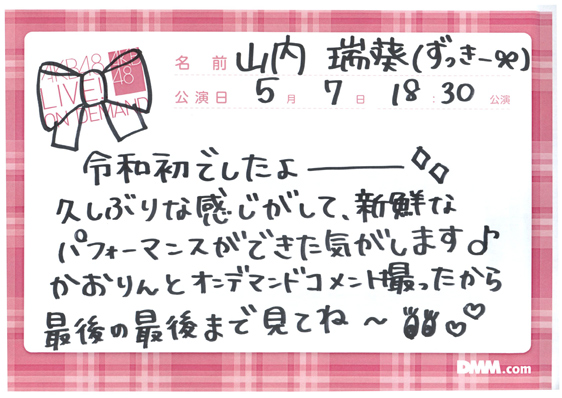 AKB48
LIVE!!
ON DEMAND
AKB
48
名前 山内 瑞葵(ずっきー)
公演日 5月7日 18:30 公演
令和初でしたよ―――
久しぶりな感じがして、新鮮な
パフォーマンスができた気がします♪
かおりんとオンデマンドコメント撮ったから
最後の最後まで見てね〜
DMM.com